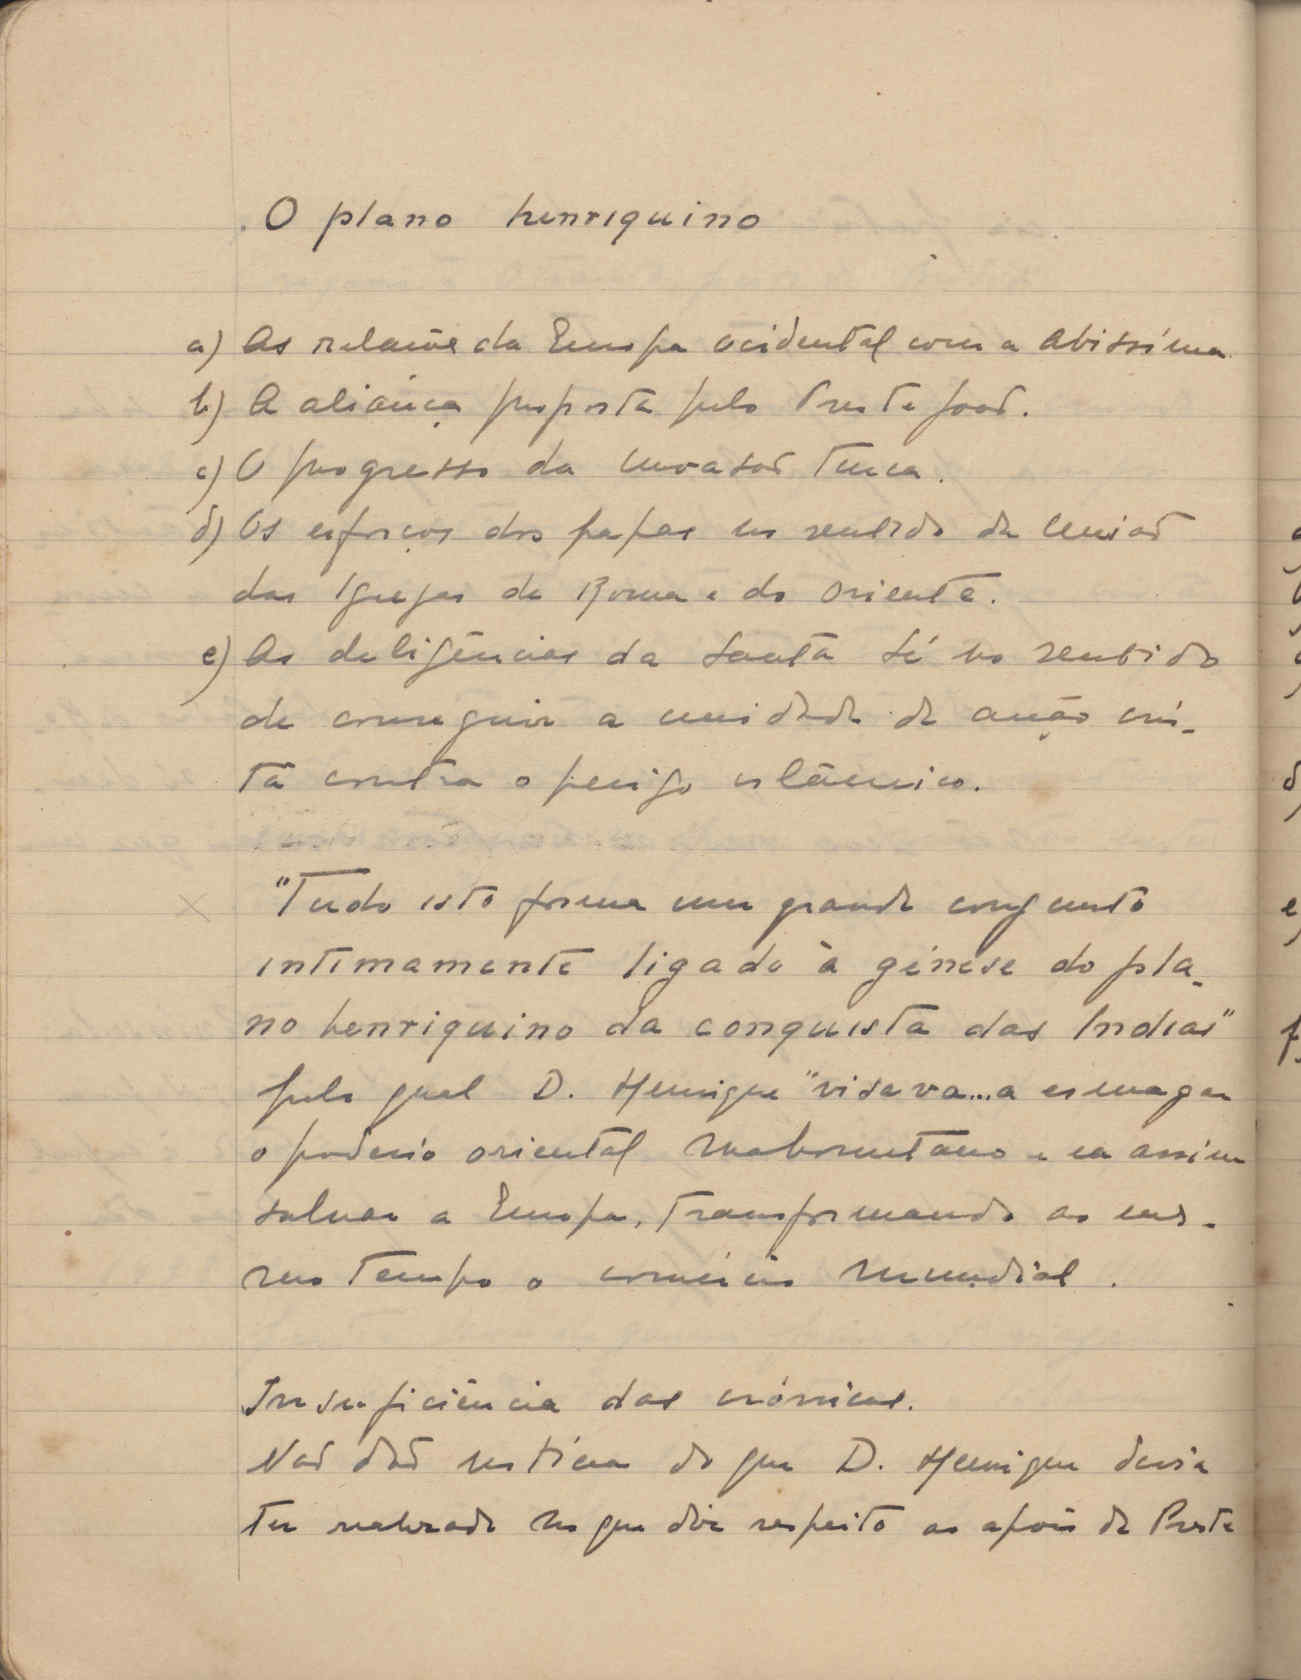 O plano henriquino
a) As relações da Europa ocidental com a Abissínia
b) A aliança proposta pelo Preste João.
c) O progresso da invasão turca.
d) Os esforços dos papas no sentido da união
das Igrejas de Roma e do Oriente.
e) As deligências da Santa Sé no sentido
de conseguir a unidade de acção cris-
tã contra o perigo islâmico.
"Tudo isto forma um grande conjunto
intimamente ligado à génese do pla-
no henriquino da conquista das Indias"
pelo qual D. Henrique "visava...a esmagar
o poderio oriental mahometano e a assim
salvar a Europa, transformando ao mes-
mo tempo o comércio mundial.
Insuficiência das crónicas.
Não dão notícia do que D. Henrique devia
ter realizado no que diz respeito ao apoio do Preste